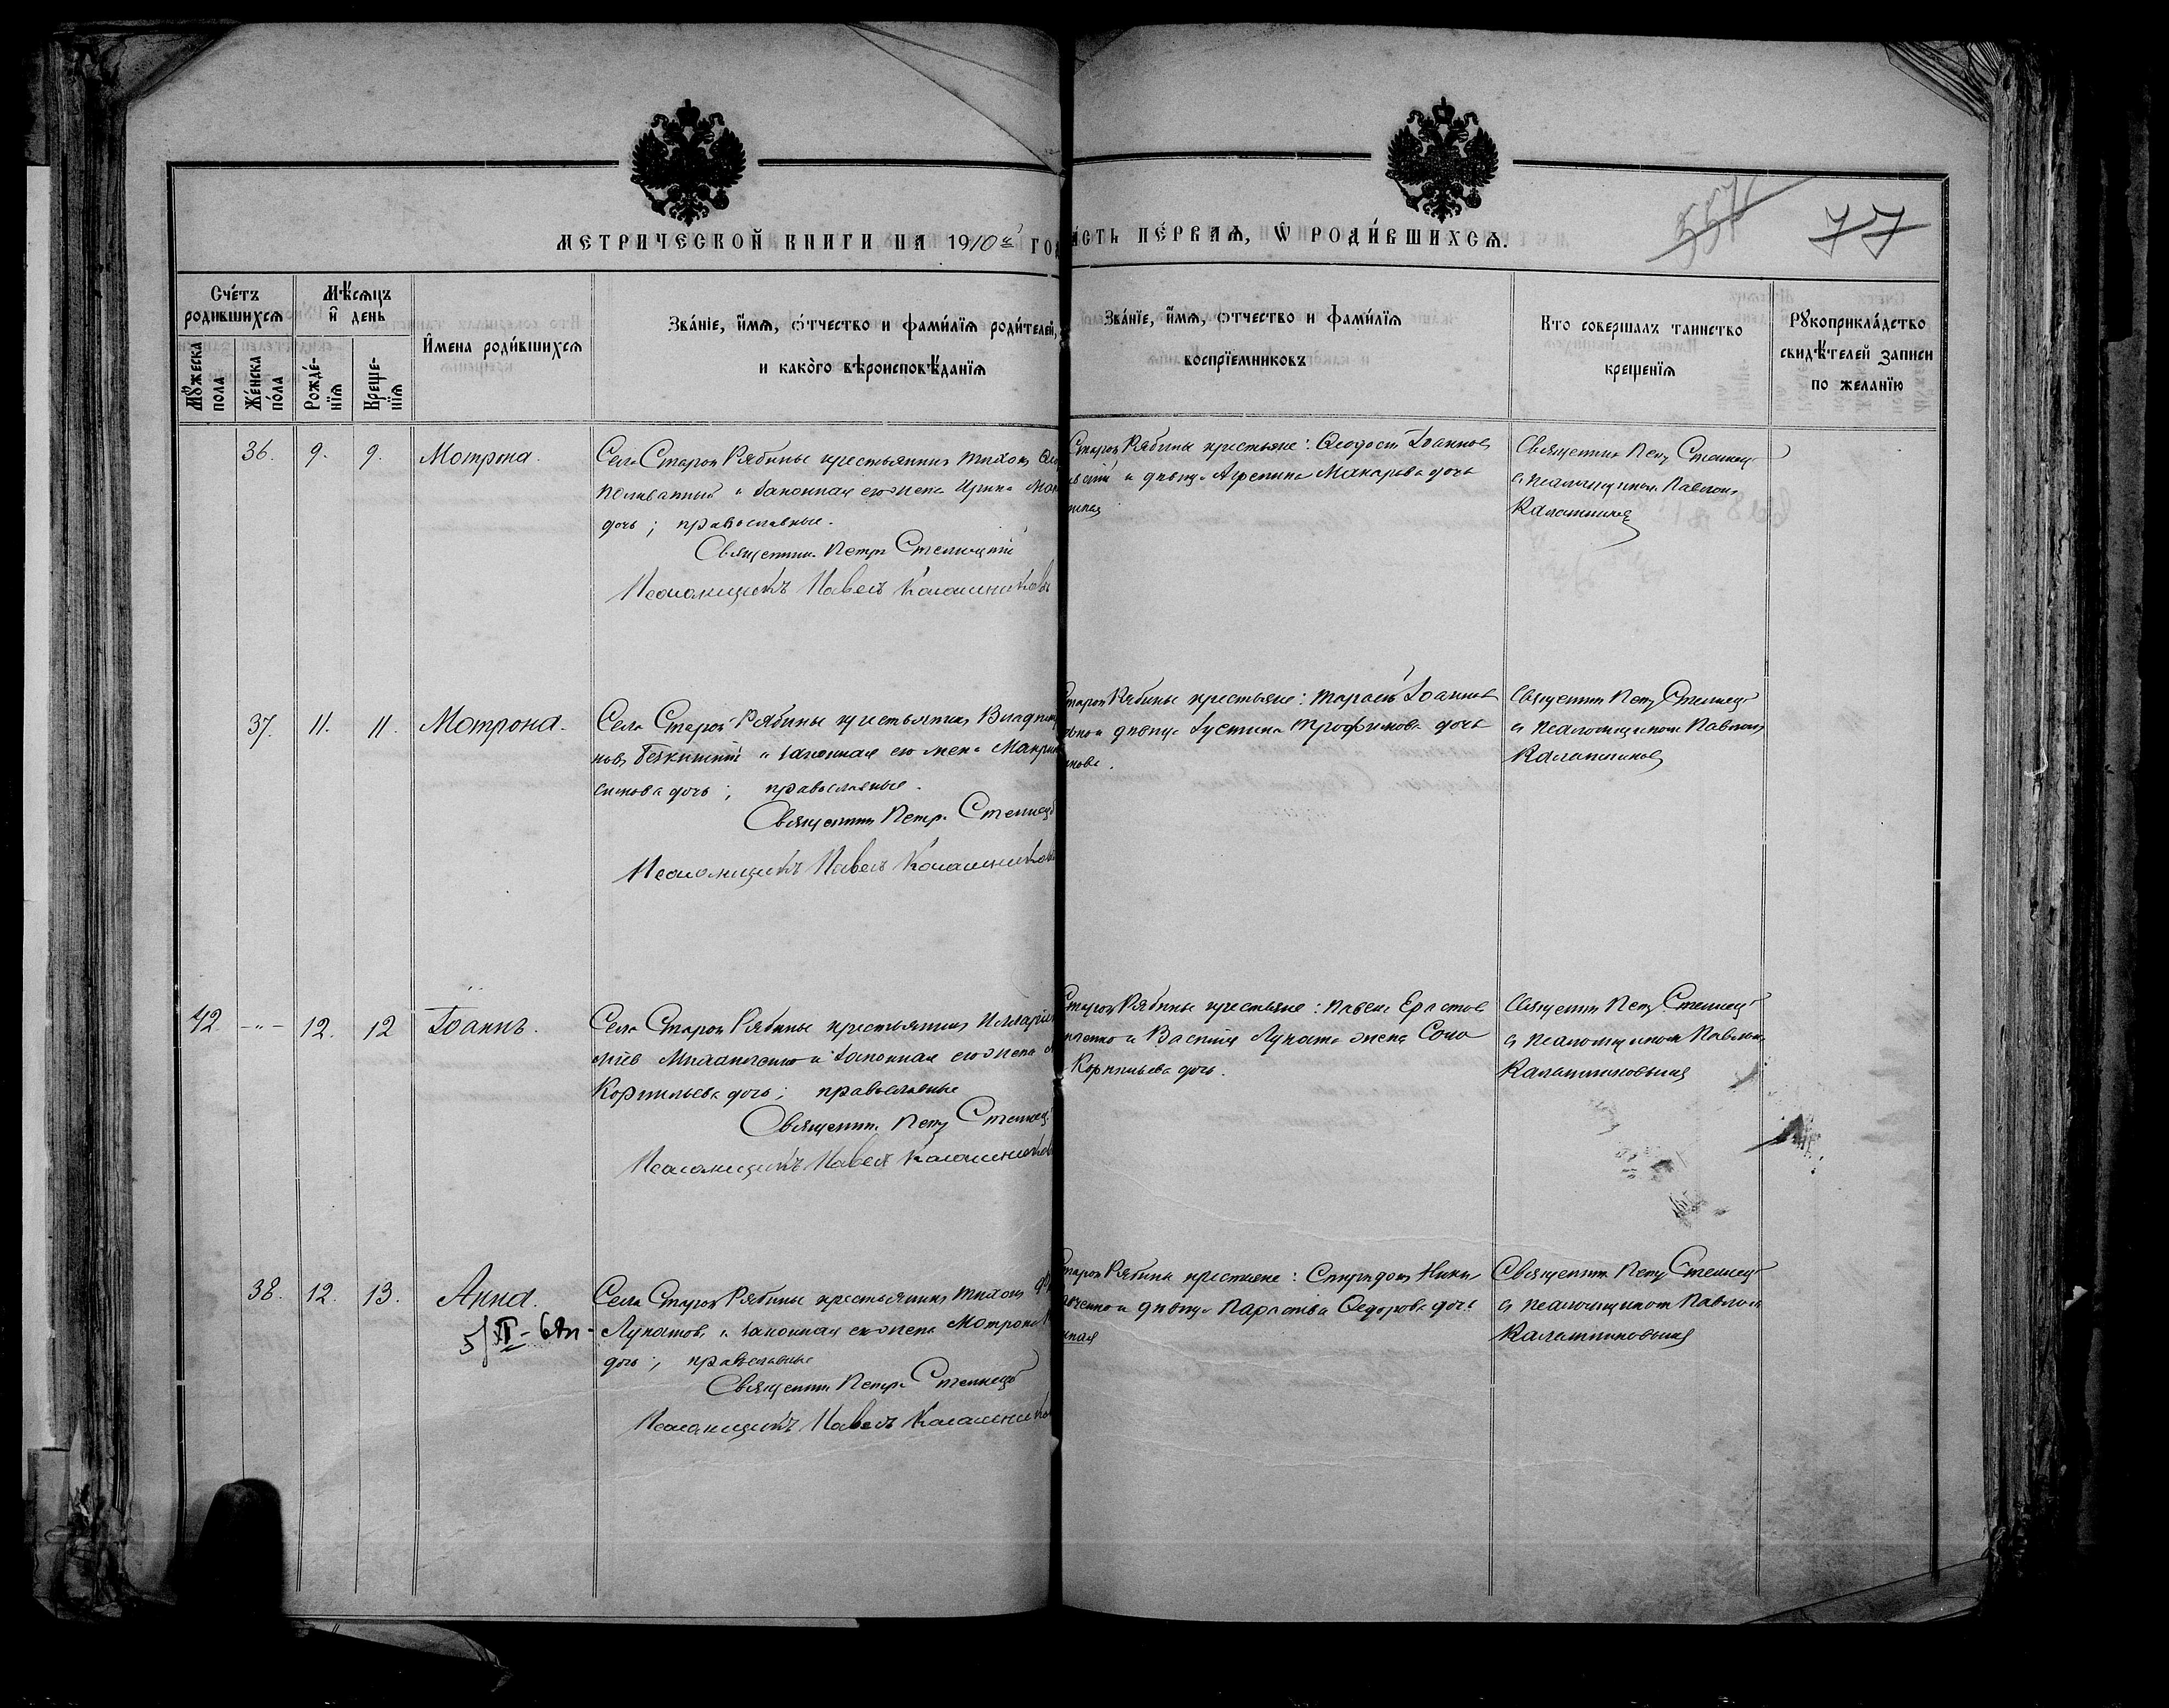 МЕТРИЧЕСКОЙ КНИГИ НА 1910й ГО
АСТЬ ПЕ́РВАѦ, Ѡ РОДИ́ВШИХСѦ.
557
77
Сче́тъ родившихсѧ
Мꙋжеска пола
Же́нска по́ла
Мѣ́сѧцъ и҆ день
Рожде́нїѧ
Креще́нїѧ
И҆мена роди́вшихсѧ
Зва́нїе, и҆́мѧ, о́тчество и фами́лїѧ роди́телей,
и како́го вѣроисповѣ́данїѧ
Зва́нїе, и҆́мѧ, о́тчество и фами́лїѧ
воспрїемниковъ
Кто совершалъ таинство
креще́нїѧ
Рꙋкоприкла́дство
свидѣ́телей записи
по желанїю
36. 9. 9. Мотрона.
Села Старой Рябины крестьянинъ Тихонъ
Поливанный и законная его жена Ирина
дочь; православные.
Священникъ Петръ Стеллецкій
Псаломщикъ Павелъ Калашниковъ
Старой Рябины крестьяне: Ѳеодосій Іоанновъ
и дѣвица Макарьева дочь
Священникъ Петръ Стеллецкій
съ псаломщикомъ Павломъ
Калашниковымъ
37. 11. 11. Мотрона.
Села Старой Рябины крестьянинъ
новъ и законная его жена
дочь; православные.
Священникъ Петръ Стеллецкій
Псаломщикъ Павелъ Калашниковъ
Старой Рябины крестьяне: Тарасій Іоанновъ
и дѣвица Іустина Трофимова дочь
Священникъ Петръ Стеллецкій
съ псаломщикомъ Павломъ
Калашниковымъ
42 -"- 12. 12 Іоаннъ.
Села Старой Рябины крестьянинъ
и законная его жена
Корнильева дочь; православные
Священникъ Петръ Стеллецкій
Псаломщикъ Павелъ Калашниковъ
Старой Рябины крестьяне: Павелъ Ерастовъ
и Василія Лукаша жена
Корнильева дочь.
Священникъ Петръ Стеллецкій
съ псаломщикомъ Павломъ
Калашниковымъ
38. 12. 13. Анна.
5/XI-69г.
Села Старой Рябины крестьянинъ Тихонъ
и законная его жена Мотрона
дочь; православные
Священникъ Петръ Стеллецкій
Псаломщикъ Павелъ Калашниковъ
Старой Рябины крестьяне: Спиридонъ
и дѣвица Параскева Ѳедорова дочь
Священникъ Петръ Стеллецкій
съ псаломщикомъ Павломъ
Калашниковымъ